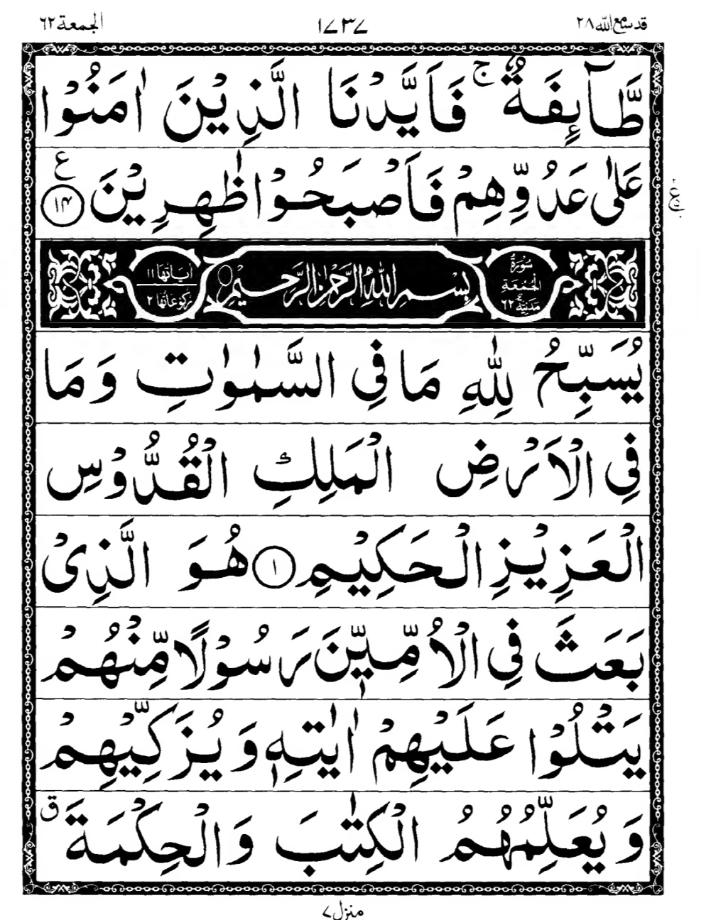 قد سمع الله ۲۸ ۱۷۳۷ الجمعة ۶۲
طَّآئِفَةٌ ۚ فَاَيَّدْنَا الَّذِيْنَ اٰمَنُوْا
عَلٰى عَدُوِّهِمْ فَاَصْبَحُوْا ظٰهِرِيْنَ ۱۴ ع
سُوْرَةُ الْجُمُعَةِ مَدَنِيَّةٌ بِسْمِ اللّٰهِ الرَّحْمٰنِ الرَّحِيْمِ اٰيَاتُهَا ۱۱ رُكُوْعَاتُهَا ۲
يُسَبِّحُ لِلّٰهِ مَا فِي السَّمٰوٰتِ وَمَا
فِي الْاَرْضِ الْمَلِكِ الْقُدُّوْسِ
الْعَزِيْزِ الْحَكِيْمِ ۱ هُوَ الَّذِيْ
بَعَثَ فِي الْاُمِّيّٖنَ رَسُوْلًا مِّنْهُمْ
يَتْلُوْا عَلَيْهِمْ اٰيٰتِهٖ وَيُزَكِّيْهِمْ
وَيُعَلِّمُهُمُ الْكِتٰبَ وَالْحِكْمَةَ ق
منزل ۷